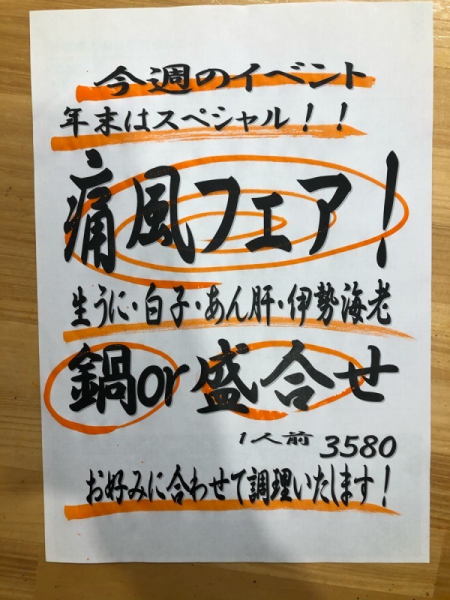 今週のイベント
年末はスペシャル！！
痛風フェア！
生うに・白子・あん肝・伊勢海老
鍋or盛合せ
1人前 3580
お好みに合わせて調理いたします！